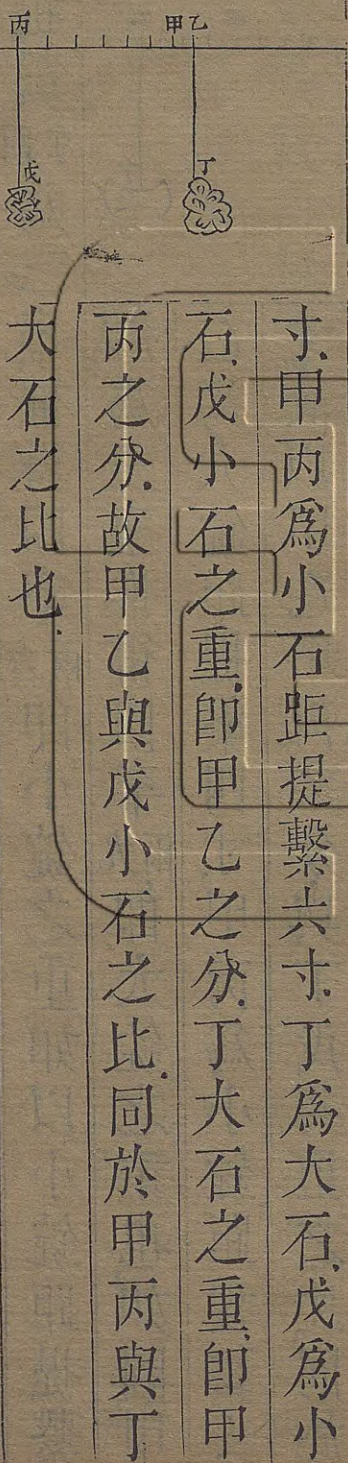 寸.甲丙爲小石距提繫六寸.丁爲大石.戊爲小
石.戊小石之重.卽甲乙之分.丁大石之重.卽甲
丙之分.故甲乙與戊小石之比.同於甲丙與丁
大石之比也.
甲乙
丙
丁
戊